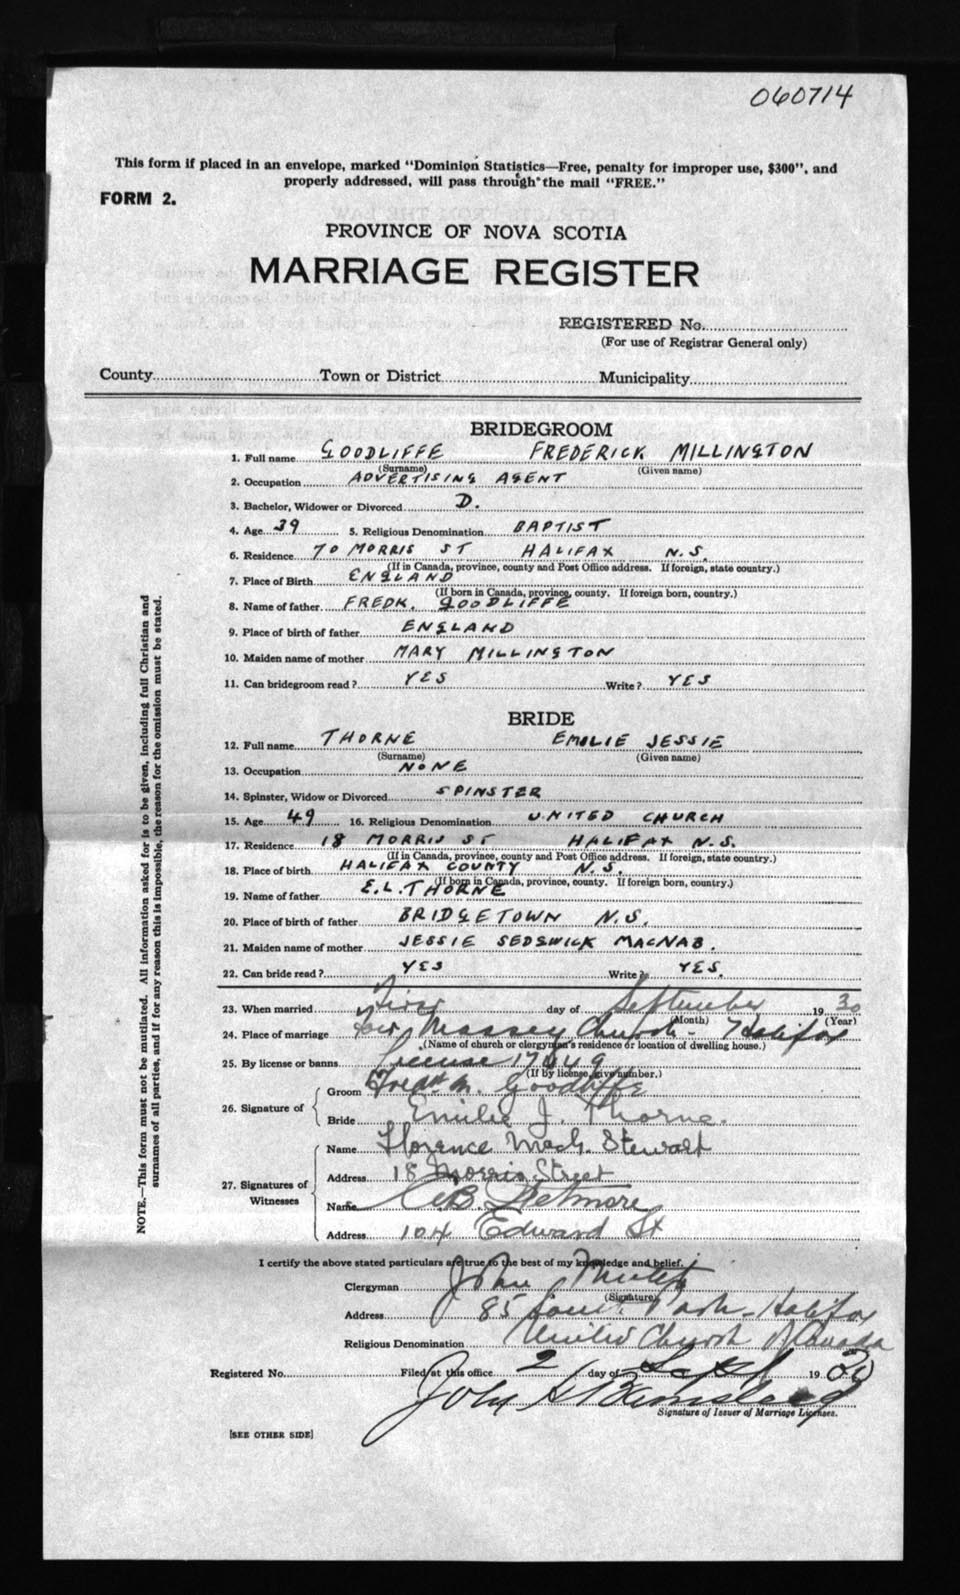 060714
This form if placed in an envelope, marked "Dominion Statistics—Free, penalty for improper use, $300", and
properly addressed, will pass through the mail "FREE."
FORM 2.
PROVINCE OF NOVA SCOTIA
MARRIAGE REGISTER
REGISTERED No.
(For use of Registrar General only)
County Town or District Municipality
BRIDEGROOM
1. Full name GOODLIFFE FREDERICK MILLINGTON
(Surname) (Given name)
2. Occupation ADVERTISING AGENT
3. Bachelor, Widower or Divorced D.
4. Age 39 5. Religious Denomination BAPTIST
6. Residence 70 MORRIS ST HALIFAX N.S.
(If in Canada, province, county and Post Office address. If foreign, state country.)
7. Place of Birth ENGLAND
(If born in Canada, province, county. If foreign born, country.)
8. Name of father FREDK. GOODLIFFE
9. Place of birth of father ENGLAND
10. Maiden name of mother MARY MILLINGTON
11. Can bridegroom read? YES Write? YES
BRIDE
12. Full name THORNE EMILIE JESSIE
(Surname) (Given name)
13. Occupation NONE
14. Spinster, Widow or Divorced SPINSTER
15. Age 49 16. Religious Denomination UNITED CHURCH
17. Residence 18 MORRIS ST HALIFAX N.S.
(If in Canada, province, county and Post Office address. If foreign, state country.)
18. Place of birth HALIFAX COUNTY N.S.
(If born in Canada, province, county. If foreign born, country.)
19. Name of father E.L. THORNE
20. Place of birth of father BRIDGETOWN N.S.
21. Maiden name of mother JESSIE SEDGWICK MACNAB.
22. Can bride read? YES Write? YES.
23. When married First day of September 19 30
(Month) (Year)
24. Place of marriage Fort Massey Church - Halifax
(Name of church or clergyman's residence or location of dwelling house.)
25. By license or banns License
(If by license, give number.)
26. Signature of
Groom Fredk. M. Goodliffe
Bride Emilie J. Thorne.
27. Signatures of Witnesses
Name Florence Stewart
Address 18 Morris Street
Name
Address 104 Edward St
I certify the above stated particulars are true to the best of my knowledge and belief.
Clergyman John
(Signature)
Address 85 Park - Halifax
Religious Denomination United Church of Canada
Registered No. Filed at this office 2 day of Sept 19 30
John
Signature of Issuer of Marriage Licenses.
[SEE OTHER SIDE]
NOTE.—This form must not be mutilated. All information asked for is to be given, including full Christian and
surnames of all parties, and if for any reason this is impossible, the reason for the omission must be stated.